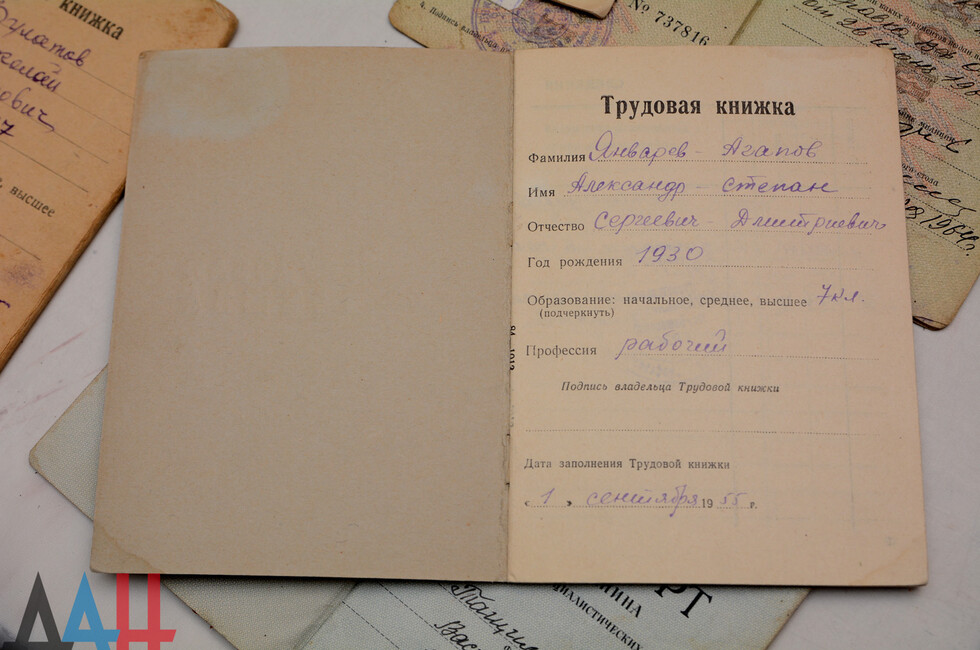 книжка
Булатов
№ 737816
Трудовая книжка
Фамилия Январев - Агапов
Имя Александр - Степан
Отчество Сергеевич - Дмитриевич
Год рождения 1930
Образование: начальное, среднее, высшее 7 кл.
(подчеркнуть)
Профессия рабочий
Подпись владельца Трудовой книжки
Дата заполнения Трудовой книжки
« 1 » сентября 19 55 г.
высшее
1964г.
ДАН